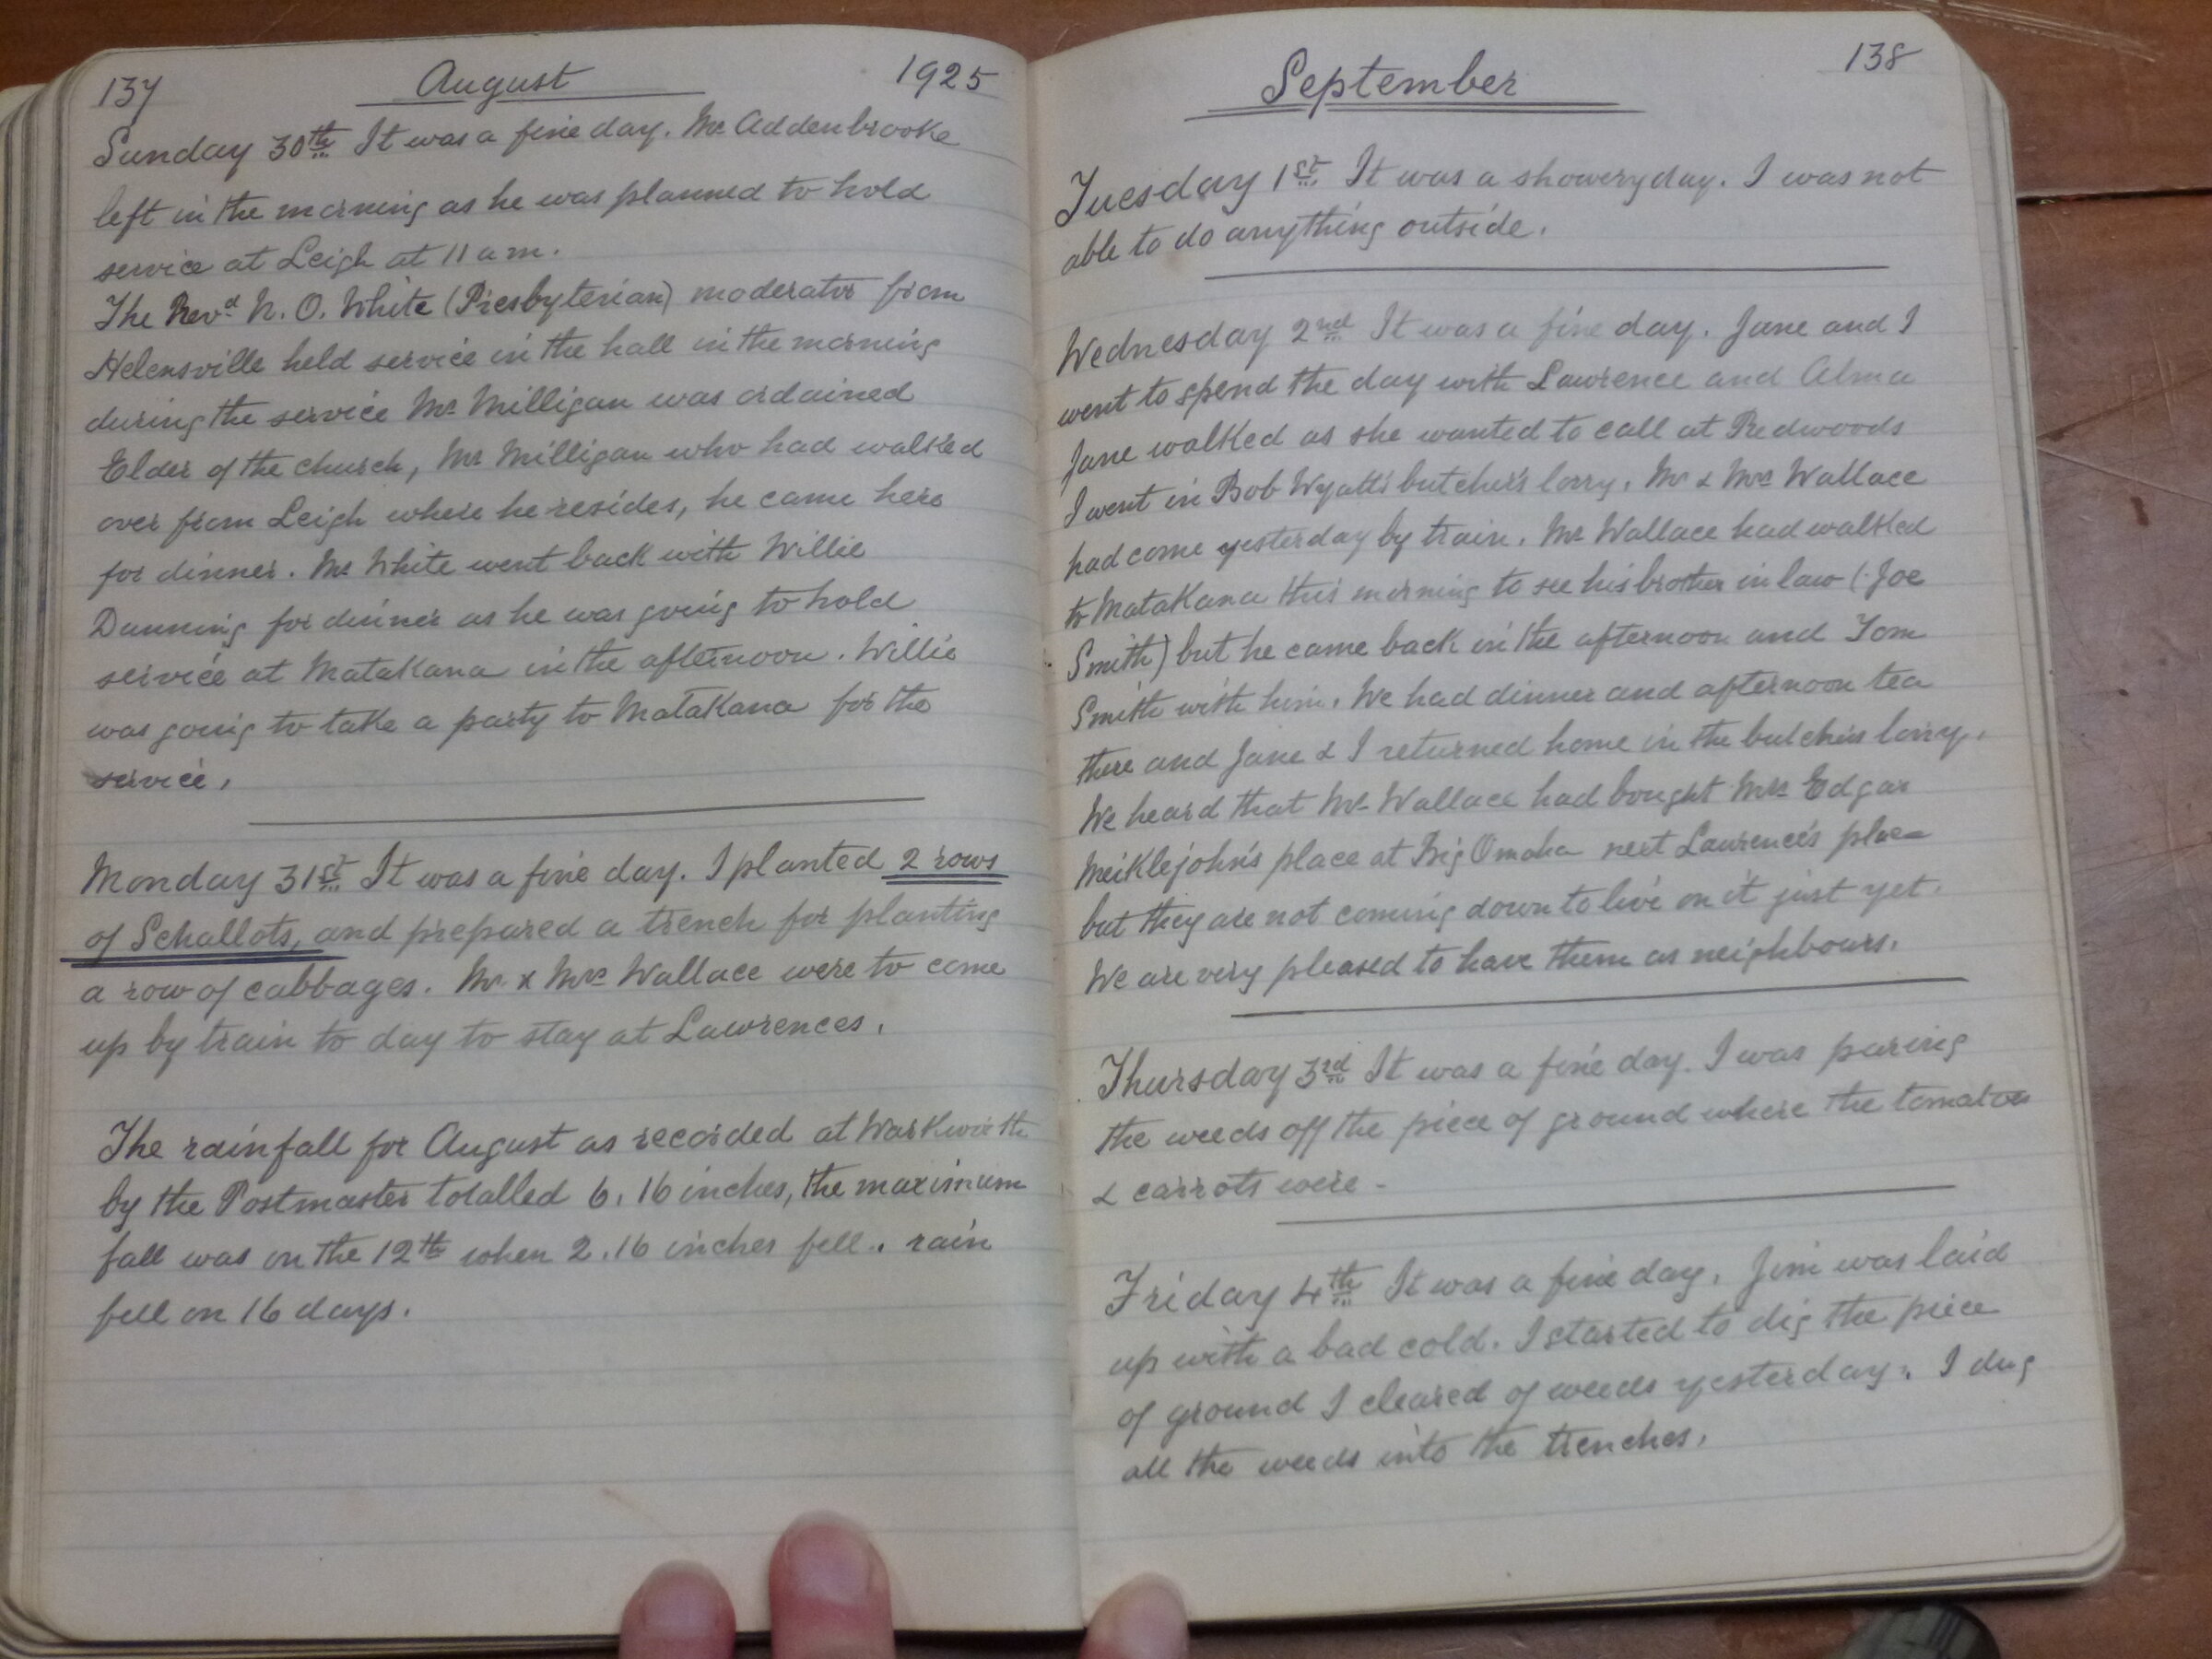 137 August 1925
Sunday 30th It was a fine day. Mr Addenbrooke
left in the morning as he was planned to hold
service at Leigh at 11 am.
The Revd N. O. White (Presbyterian) moderator from
Helensville held service in the hall in the morning
during the service Mr Milligan was ordained
Elder of the church, Mr Milligan who had walked
over from Leigh where he resides, he came here
for dinner. Mr White went back with Willie
Dunning for dinner as he was going to hold
service at Matakana in the afternoon. Willie
was going to take a party to Matakana for the
service.
Monday 31st It was a fine day. I planted 2 rows
of Schallots, and prepared a trench for planting
a row of cabbages. Mr & Mrs Wallace were to come
up by train to day to stay at Lawrences.
The rainfall for August as recorded at Warkworth
by the Postmaster totalled 6.16 inches, the maximum
fall was on the 12th when 2.16 inches fell. rain
fell on 16 days.
September 138
Tuesday 1st It was a showery day. I was not
able to do anything outside.
Wednesday 2nd It was a fine day. Jane and I
went to spend the day with Lawrence and Alma
Jane walked as she wanted to call at Redwoods
I went in Bob Wyatt's butcher's lorry. Mr & Mrs Wallace
had come yesterday by train. Mr Wallace had walked
to Matakana this morning to see his brother in law (Joe
Smith) but he came back in the afternoon and Tom
Smith with him. We had dinner and afternoon tea
there and Jane & I returned home in the butchers lorry.
We heard that Mr Wallace had bought Mrs Edgar
Meiklejohn's place at Big Omaha next Lawrence's place
but they are not coming down to live on it just yet.
We are very pleased to have them as neighbours.
Thursday 3rd It was a fine day. I was paring
the weeds off the piece of ground where the tomatoes
& carrots were -
Friday 4th It was a fine day. Jim was laid
up with a bad cold. I started to dig the piece
of ground I cleared of weeds yesterday. I dug
all the weeds into the trenches.